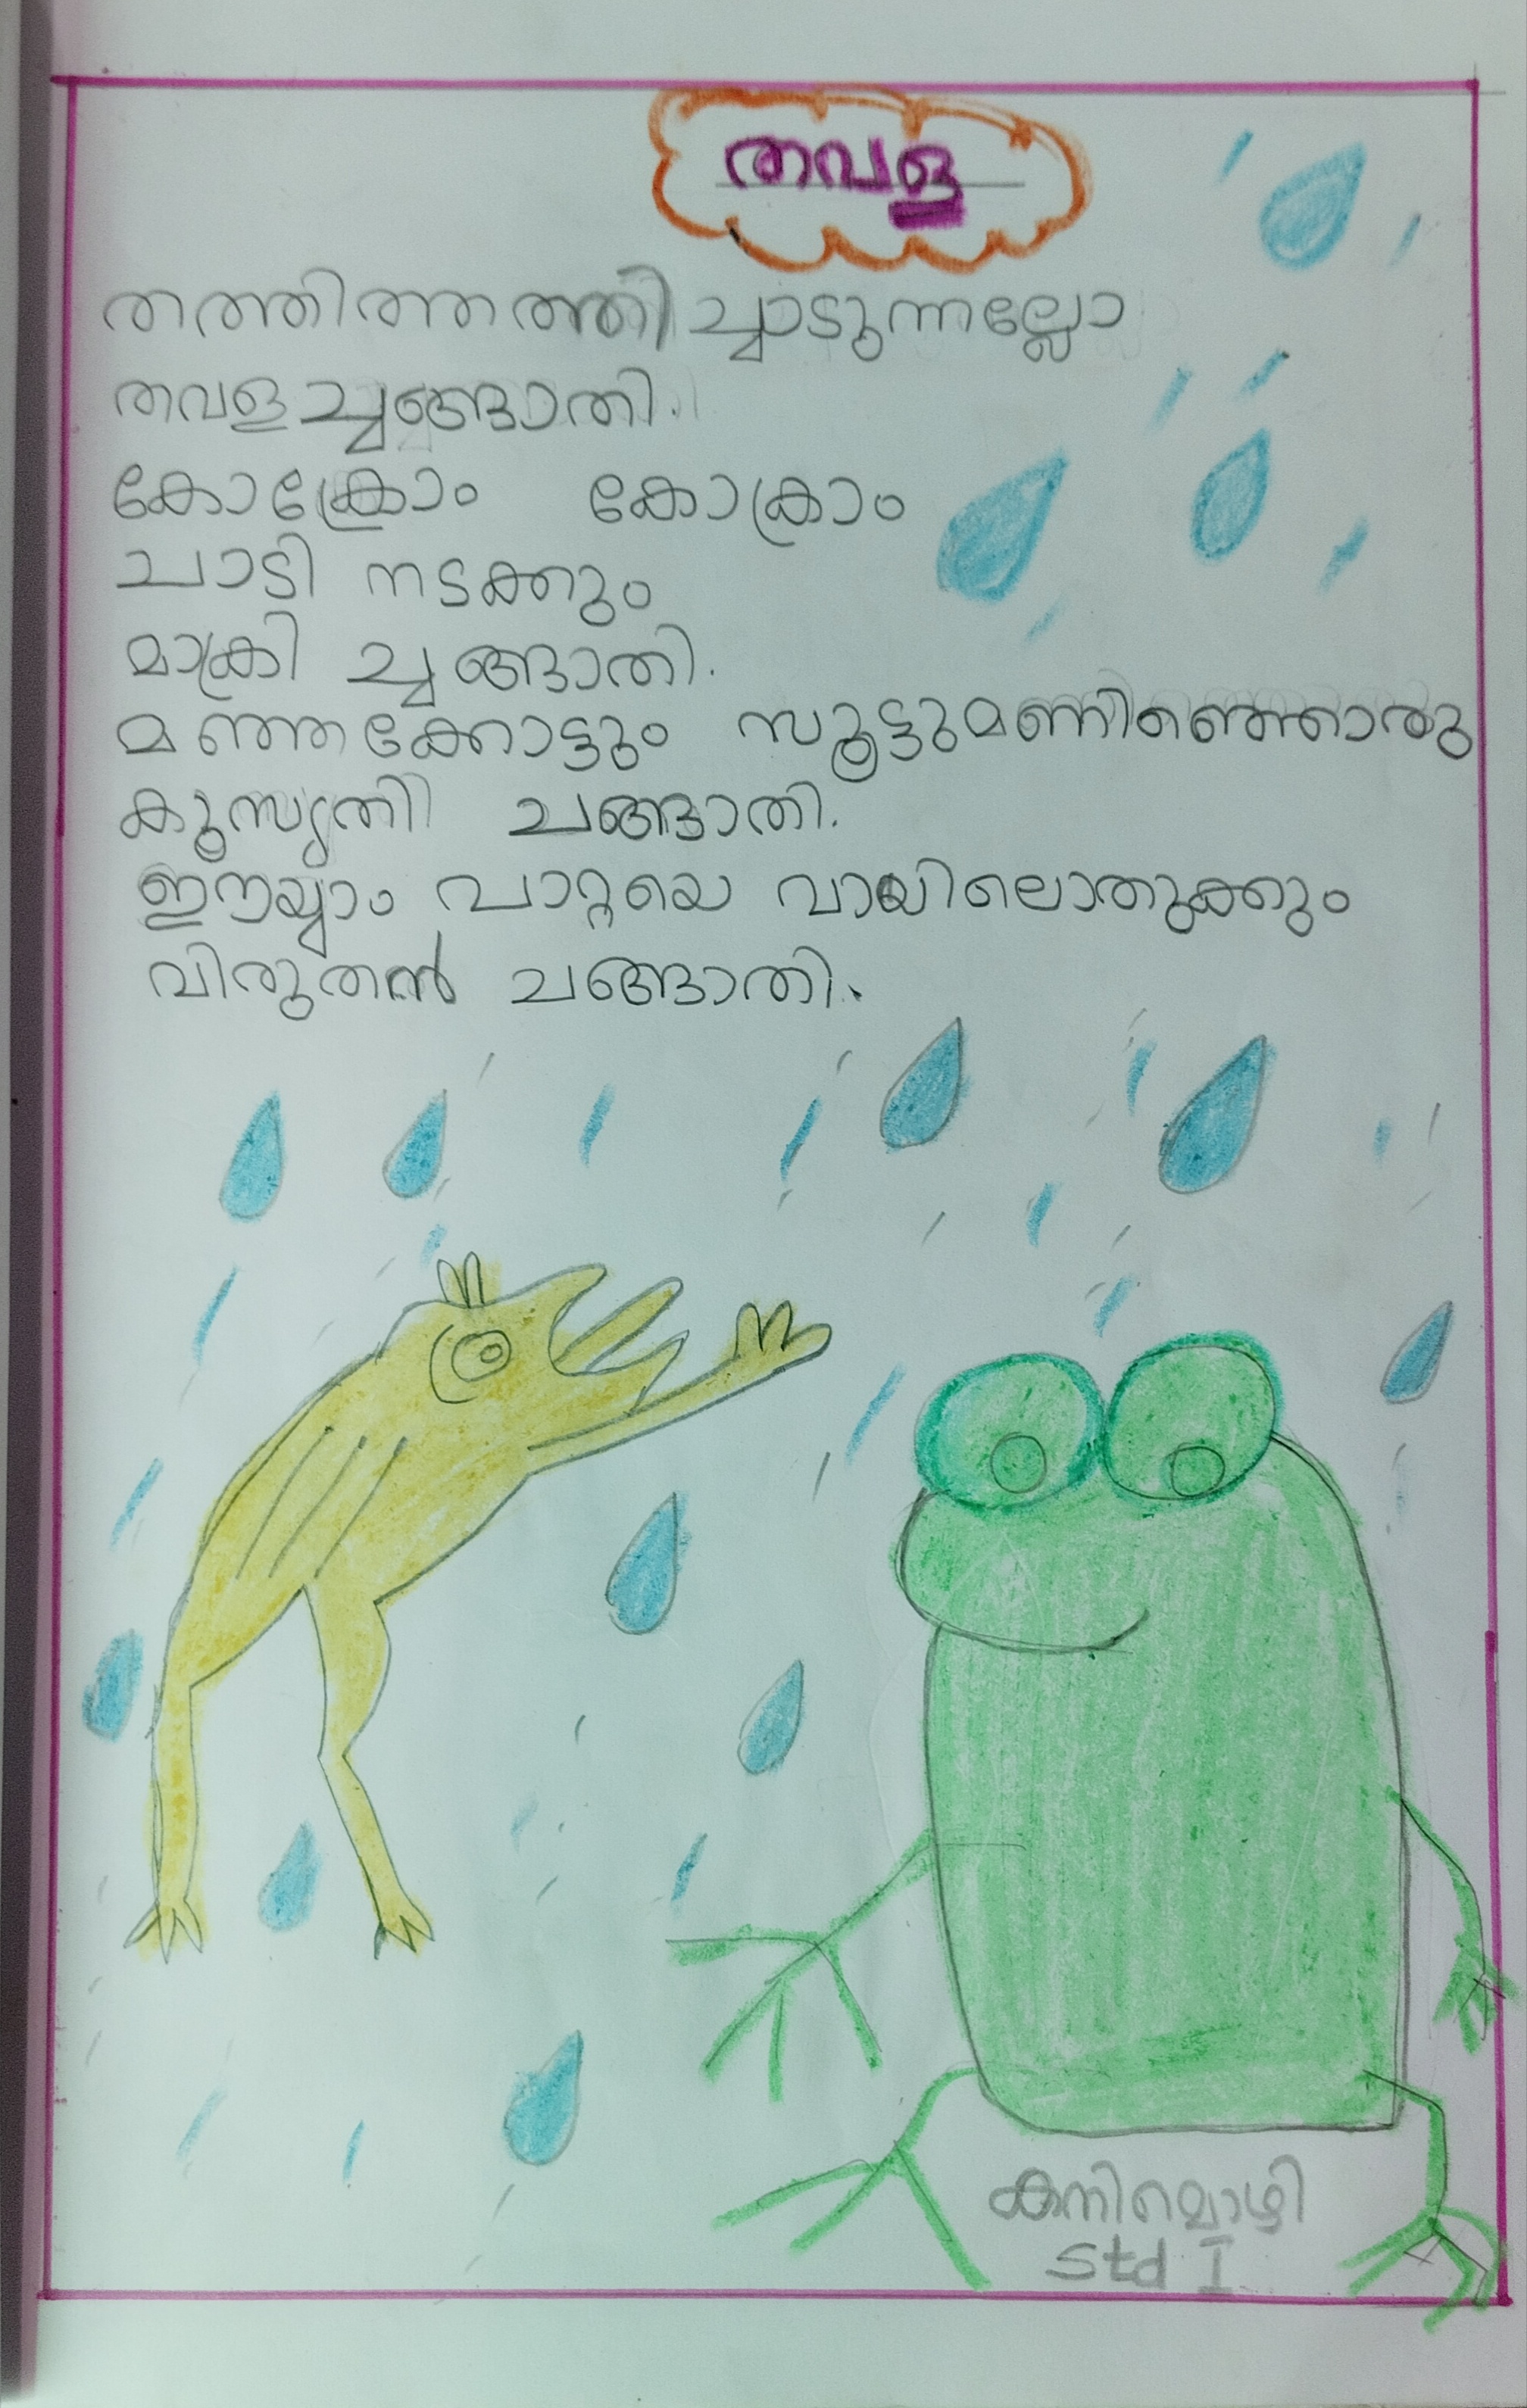 തവള
തത്തിത്തത്തി ച്ചാടുന്നല്ലോ
തവള ച്ചങ്ങാതി.
കോക്രോം കോക്രാം
പാടി നടക്കും
മാക്രി ച്ചങ്ങാതി.
മഞ്ഞക്കോട്ടും സൂട്ടുമണിഞ്ഞൊരു
കുസൃതി ചങ്ങാതി.
ഈയ്യാം പാറ്റയെ വായിലൊതുക്കും
വിരുതൻ ചങ്ങാതി.
കനിമൊഴി
Std I